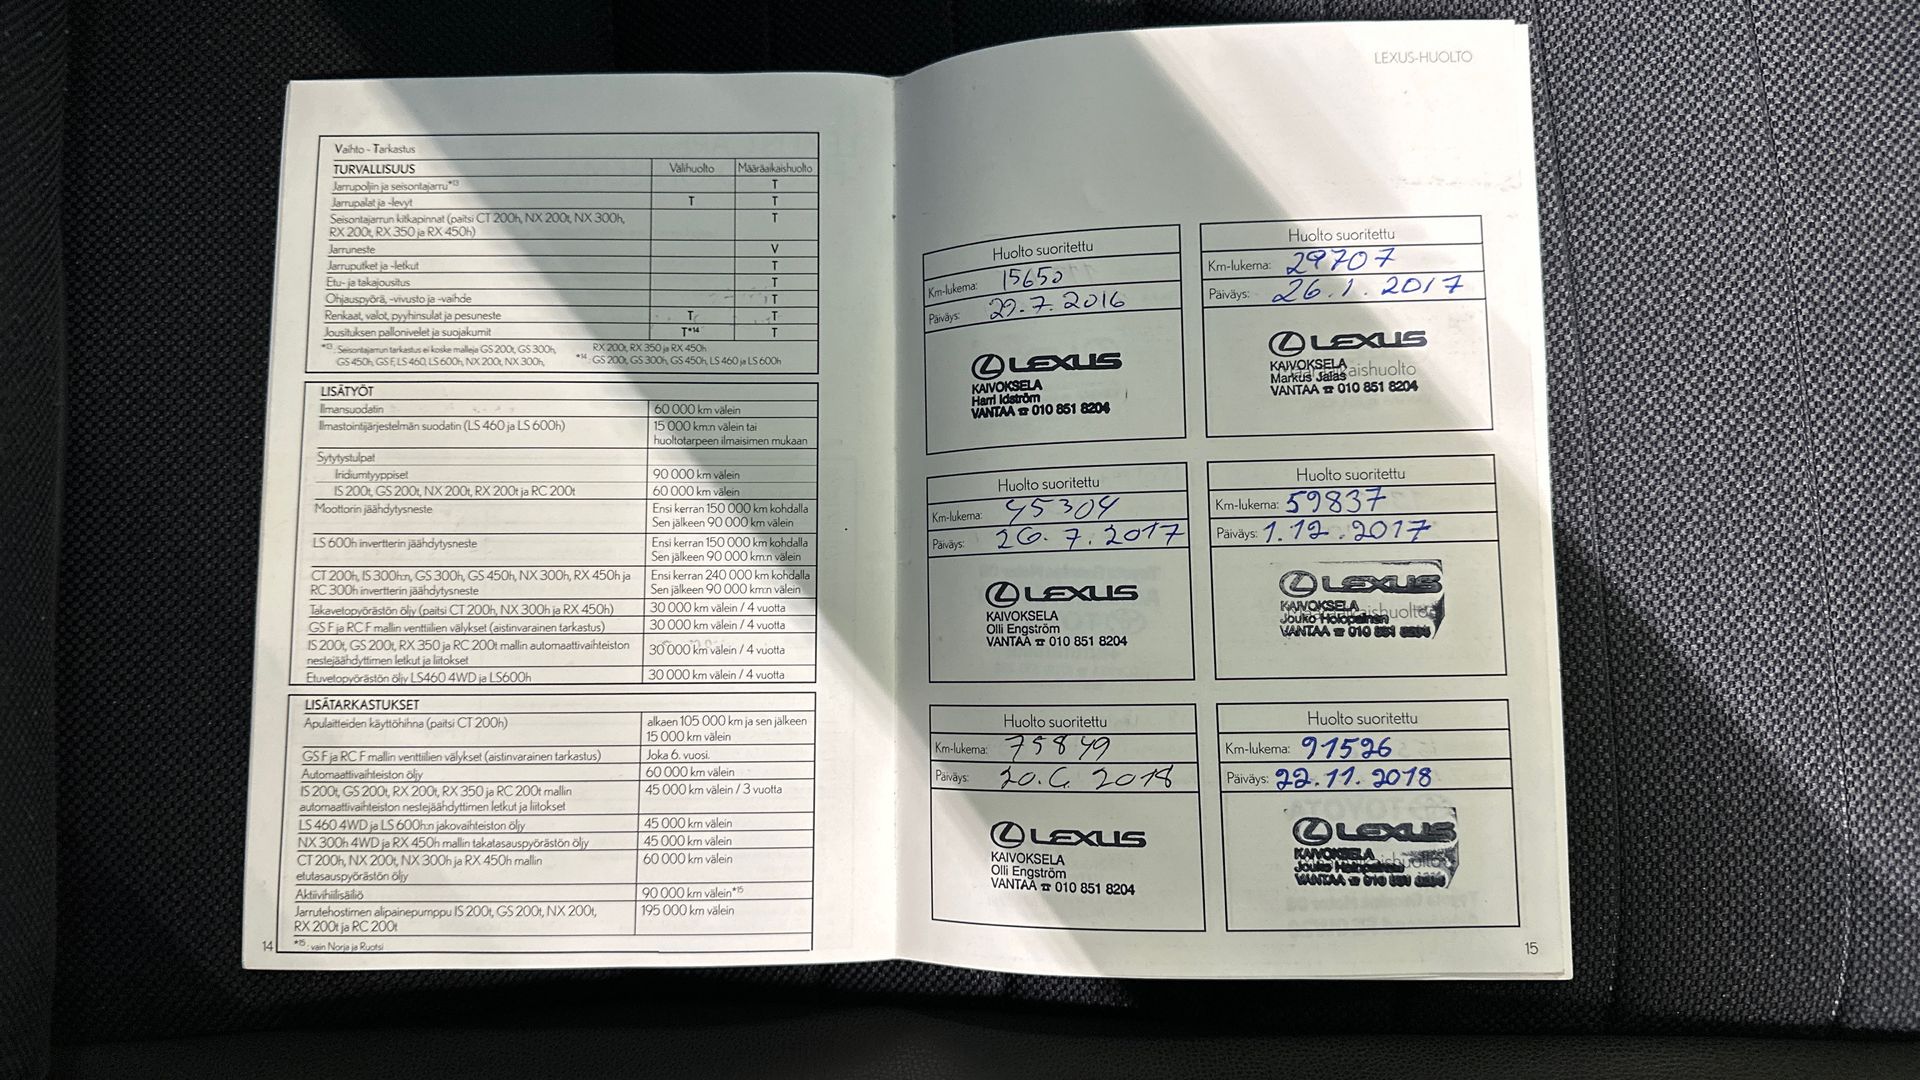 Vaihto - Tarkastus
TURVALLISUUS Välihuolto Määräaikaishuolto
Jarrupoljin ja seisontajarru*13 T
Jarrupalat ja -levyt T T
Seisontajarrun kitkapinnat (paitsi CT 200h, NX 200t, NX 300h, T
RX 200t, RX 350 ja RX 450h)
Jarruneste V
Jarruputket ja -letkut T
Etu- ja takajousitus T
Ohjauspyörä, -vivusto ja -vaihde T
Renkaat, valot, pyyhinsulat ja pesuneste T T
Jousituksen pallonivelet ja suojakumit T*14 T
*13: Seisontajarrun tarkastus ei koske malleja GS 200t, GS 300h,
GS 450h, GS F, LS 460, LS 600h, NX 200t, NX 300h,
RX 200t, RX 350 ja RX 450h
*14: GS 200t, GS 300h, GS 450h, LS 460 ja LS 600h
LISÄTYÖT
Ilmansuodatin 60 000 km välein
Ilmastointijärjestelmän suodatin (LS 460 ja LS 600h) 15 000 km:n välein tai
huoltotarpeen ilmaisimen mukaan
Sytytystulpat
Iridiumtyyppiset 90 000 km välein
IS 200t, GS 200t, NX 200t, RX 200t ja RC 200t 60 000 km välein
Moottorin jäähdytysneste Ensi kerran 150 000 km kohdalla
Sen jälkeen 90 000 km välein
LS 600h invertterin jäähdytysneste Ensi kerran 150 000 km kohdalla
Sen jälkeen 90 000 km:n välein
CT 200h, IS 300h:n, GS 300h, GS 450h, NX 300h, RX 450h ja Ensi kerran 240 000 km kohdalla
RC 300h invertterin jäähdytysneste Sen jälkeen 90 000 km:n välein
Takavetopyörästön öljy (paitsi CT 200h, NX 300h ja RX 450h) 30 000 km välein / 4 vuotta
GS F ja RC F mallin venttiilien välykset (aistinvarainen tarkastus) 30 000 km välein / 4 vuotta
IS 200t, GS 200t, RX 350 ja RC 200t mallin automaattivaihteiston 30 000 km välein / 4 vuotta
nestejäähdyttimen letkut ja liitokset
Etuvetopyörästön öljy LS460 4WD ja LS600h 30 000 km välein / 4 vuotta
LISÄTARKASTUKSET
Apulaitteiden käyttöhihna (paitsi CT 200h) alkaen 105 000 km ja sen jälkeen
15 000 km välein
GS F ja RC F mallin venttiilien välykset (aistinvarainen tarkastus) Joka 6. vuosi.
Automaattivaihteiston öljy 60 000 km välein
IS 200t, GS 200t, RX 200t, RX 350 ja RC 200t mallin 45 000 km välein / 3 vuotta
automaattivaihteiston nestejäähdyttimen letkut ja liitokset
LS 460 4WD ja LS 600h:n jakovaihteiston öljy 45 000 km välein
NX 300h 4WD ja RX 450h mallin takatasauspyörästön öljy 45 000 km välein
CT 200h, NX 200t, NX 300h ja RX 450h mallin 60 000 km välein
etutasauspyörästön öljy
Aktiivihiilisäiliö 90 000 km välein*15
Jarrutehostimen alipainepumppu IS 200t, GS 200t, NX 200t, 195 000 km välein
RX 200t ja RC 200t
*15: vain Norja ja Ruotsi
14
LEXUS-HUOLTO
Huolto suoritettu
Km-lukema: 15650
Päiväys: 29.7.2016
LEXUS
KAIVOKSELA
Harri Idström
VANTAA ☎ 010 851 8204
Huolto suoritettu
Km-lukema: 29707
Päiväys: 26.1.2017
LEXUS
KAIVOKSELA
Markus Jalas
VANTAA ☎ 010 851 8204
Huolto suoritettu
Km-lukema: 45304
Päiväys: 26.7.2017
LEXUS
KAIVOKSELA
Olli Engström
VANTAA ☎ 010 851 8204
Huolto suoritettu
Km-lukema: 59837
Päiväys: 1.12.2017
LEXUS
KAIVOKSELA
Jouko Holopainen
VANTAA ☎ 010 851 8204
Huolto suoritettu
Km-lukema: 75849
Päiväys: 20.6.2018
LEXUS
KAIVOKSELA
Olli Engström
VANTAA ☎ 010 851 8204
Huolto suoritettu
Km-lukema: 91526
Päiväys: 22.11.2018
LEXUS
KAIVOKSELA
Jouko Holopainen
VANTAA ☎ 010 851 8204
15